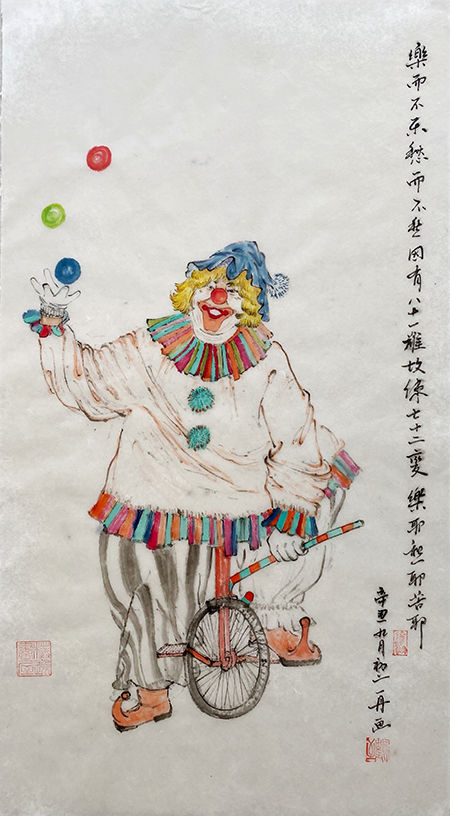 樂而不乐愁而不愁因有八十一難故練七十二變樂耶愁耶苦耶
辛丑九月初一丹画